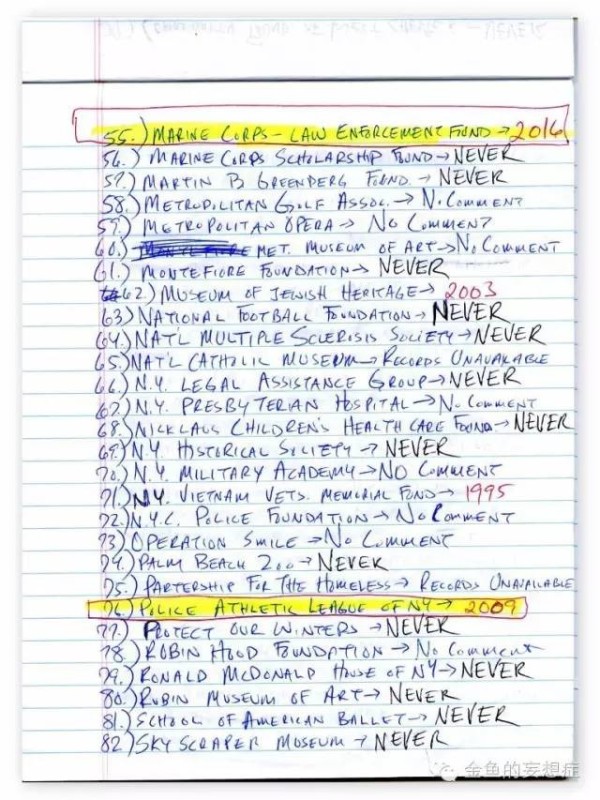 55.) MARINE CORPS - LAW ENFORCEMENT FUND → 2016
56.) MARINE CORPS SCHOLARSHIP FOUND → NEVER
57.) MARTIN B GREENBERG FOUND. → NEVER
58.) METROPOLITAN GOLF ASSOC. → NO COMMENT
59.) METROPOLITAN OPERA → NO COMMENT
60.) MET. MUSEUM OF ART → NO COMMENT
61.) MONTEFIORE FOUNDATION → NEVER
62.) MUSEUM OF JEWISH HERITAGE → 2003
63.) NATIONAL FOOTBALL FOUNDATION → NEVER
64.) NAT'L MULTIPLE SCLERISIS SOCIETY → NEVER
65.) NAT'L CATHOLIC MUSEUM → RECORDS UNAVAILABLE
66.) N.Y. LEGAL ASSISTANCE GROUP → NEVER
67.) N.Y. PRESBYTERIAN HOSPITAL → NO COMMENT
68.) NICKLAUS CHILDREN'S HEALTH CARE FOUND → NEVER
69.) N.Y. HISTORICAL SOCIETY → NEVER
70.) N.Y. MILITARY ACADEMY → NO COMMENT
71.) N.Y. VIETNAM VETS. MEMORIAL FUND → 1995
72.) N.Y.C. POLICE FOUNDATION → NO COMMENT
73.) OPERATION SMILE → NO COMMENT
74.) PALM BEACH ZOO → NEVER
75.) PARTERSHIP FOR THE HOMELESS → RECORDS UNAVAILABLE
76.) POLICE ATHLETIC LEAGUE OF NY → 2009
77.) PROTECT OUR WINTERS → NEVER
78.) ROBIN HOOD FOUNDATION → NO COMMENT
79.) RONALD MCDONALD HOUSE OF NY → NEVER
80.) RUBIN MUSEUM OF ART → NEVER
81.) SCHOOL OF AMERICAN BALLET → NEVER
82.) SKYSCRAPER MUSEUM → NEVER
金鱼的妄想症